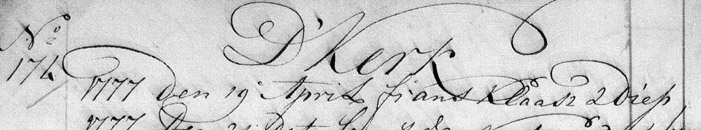 No
174
D'Kerk
1777 den 19 April frans Klaasz 2 Diep
1777 den 21